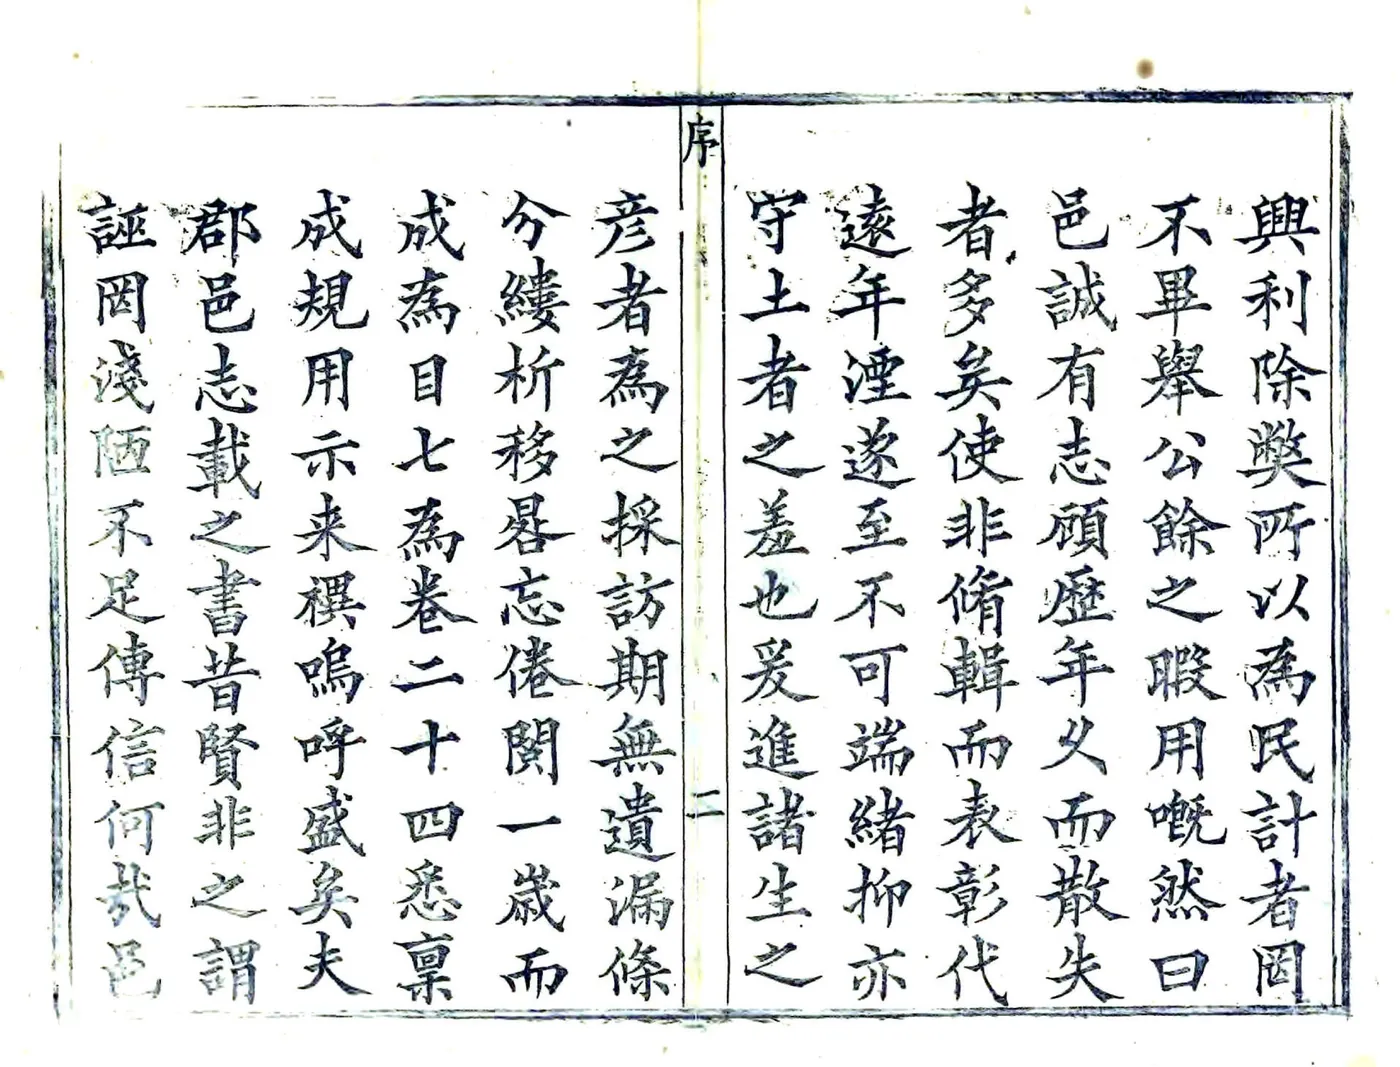 興利除獘所以為民計者罔
不畢舉公餘之暇用嘅然曰
邑誠有志顧歷年久而散失
者多矣使非脩輯而表彰代
遠年湮遂至不可端緒抑亦
守土者之羞也爰進諸生之
序
二
彦者為之採訪期無遺漏條
分縷析移晷忘倦閱一歲而
成為目七為卷二十四悉稟
成規用示来禩嗚呼盛矣夫
郡邑志載之書昔賢非之謂
誣罔淺陋不足傳信何㢤邑